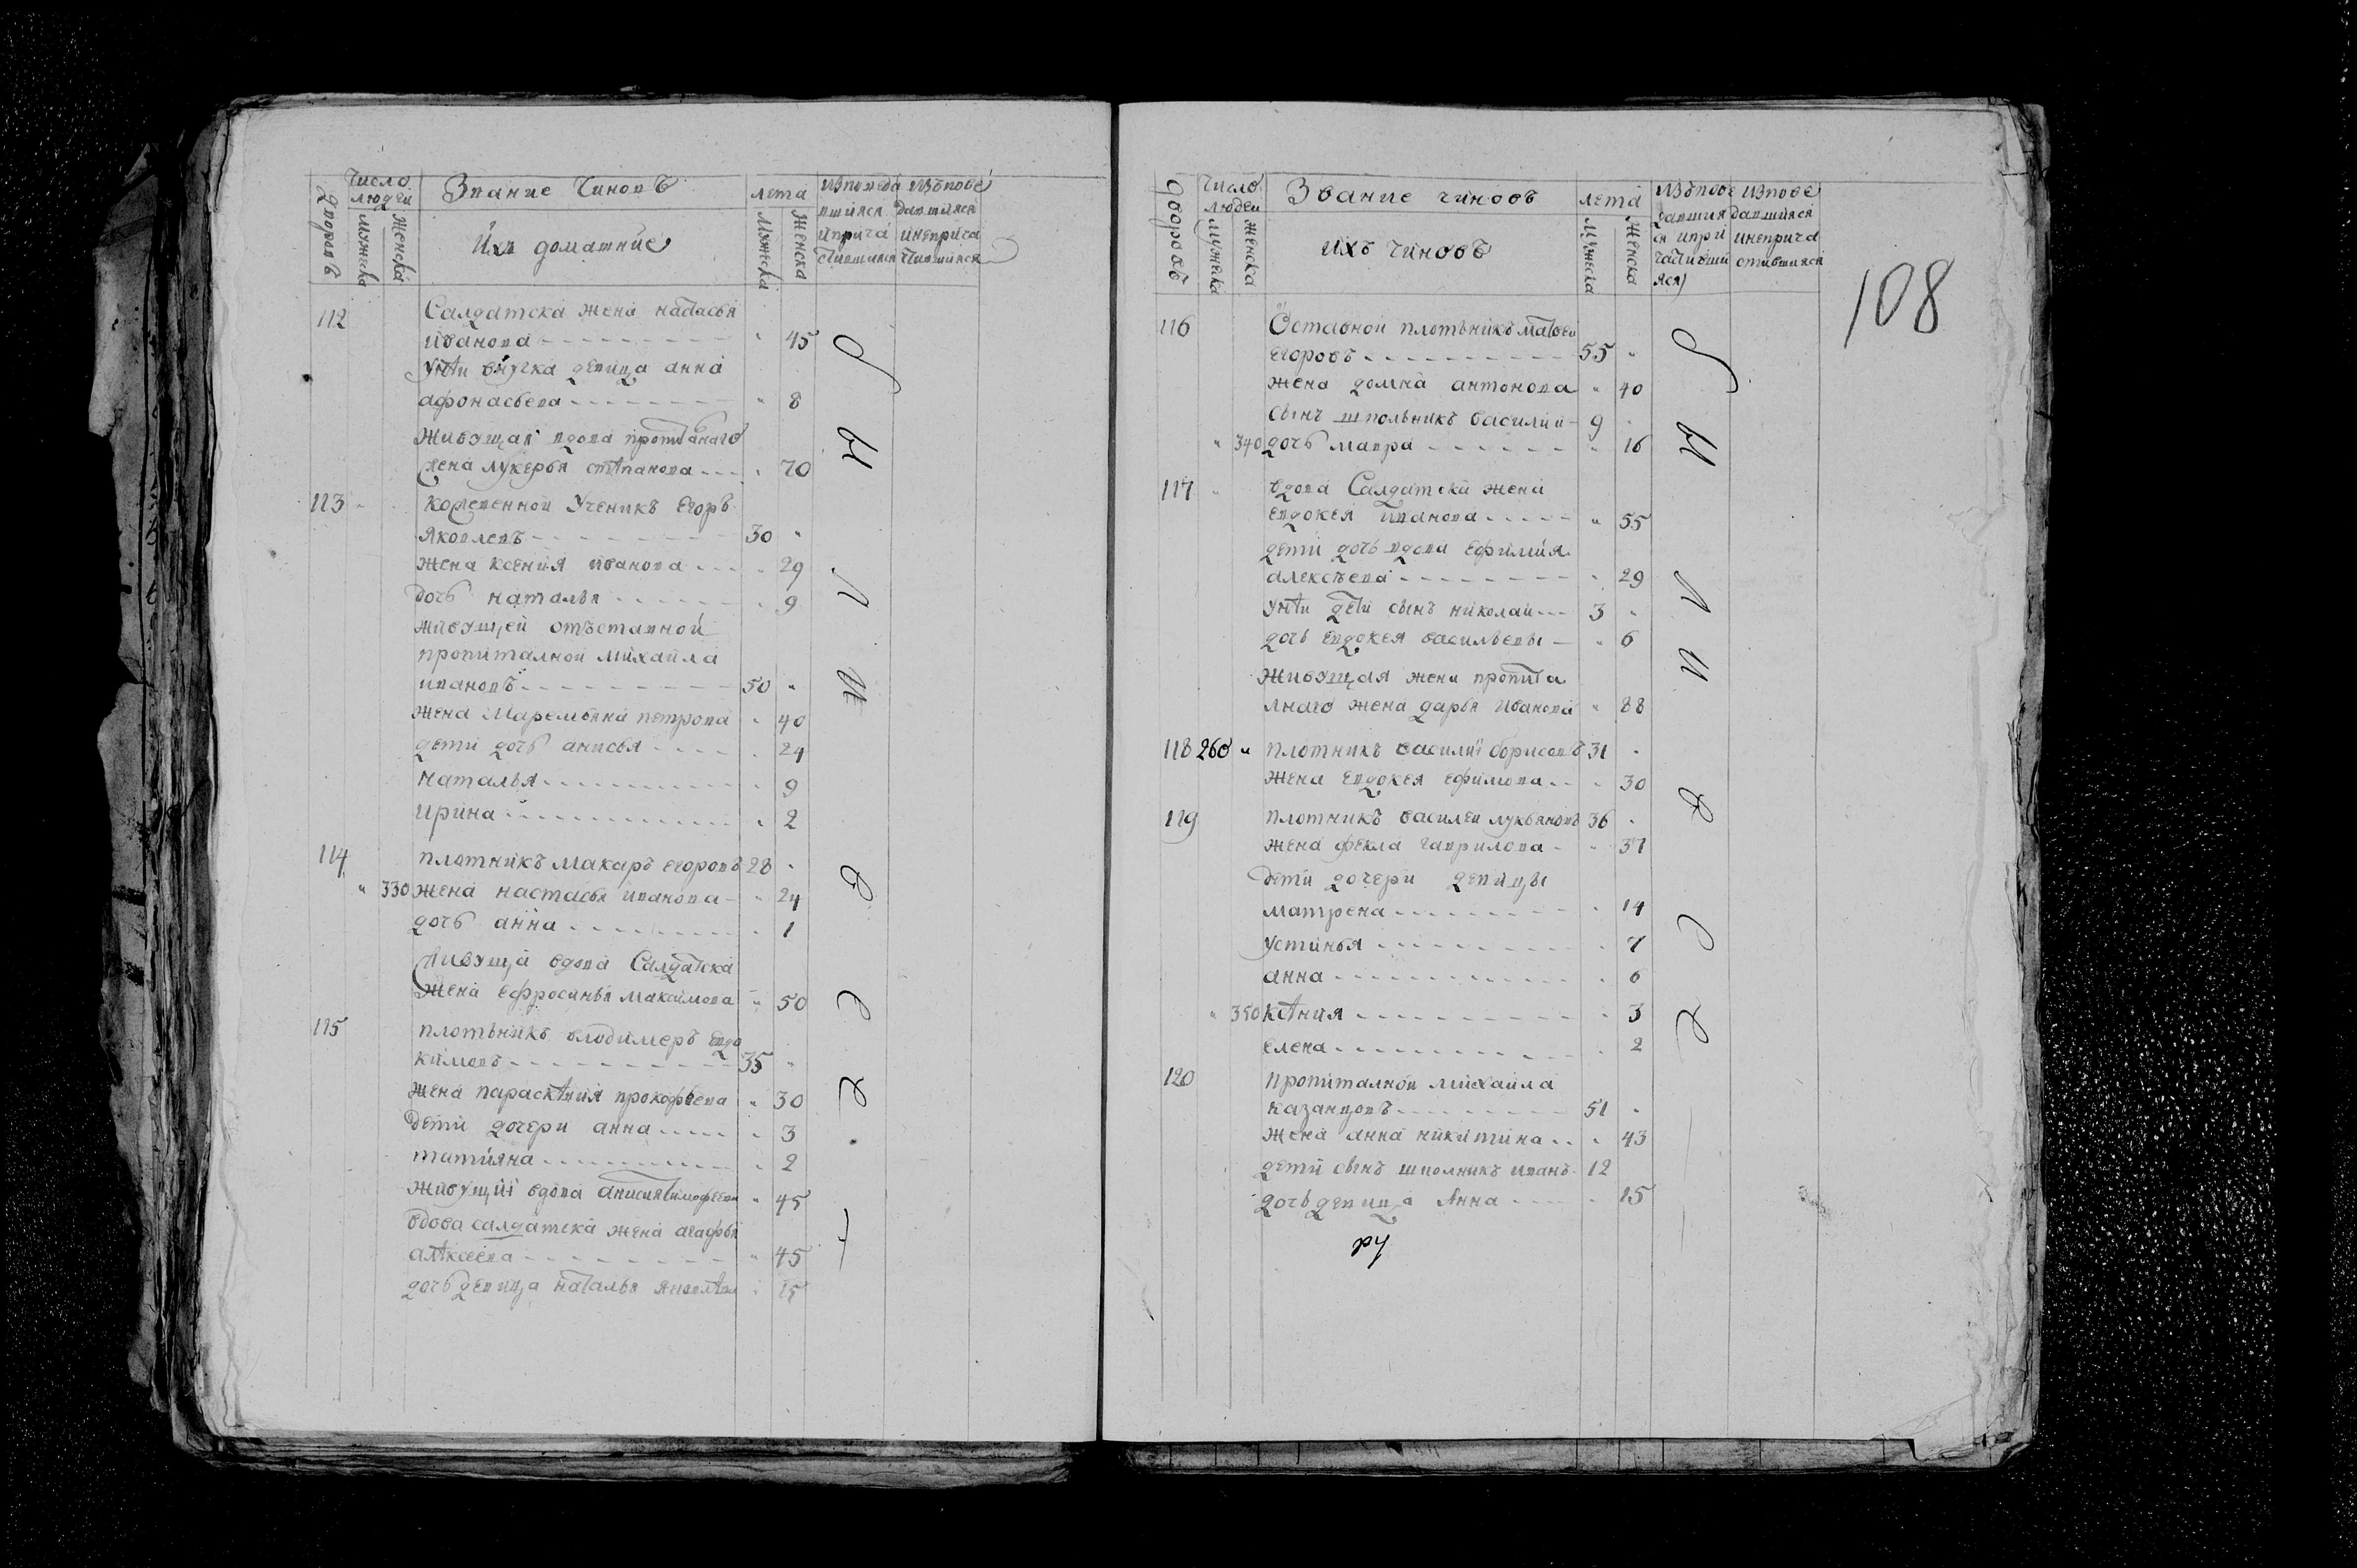 Дворовъ
Число людей
Мужеска
Женска
Звание Чиновъ
Ихъ доматние
лета
Мужеска
Женска
Изповеда
вшияся
иприча
стившияся
Изъпове
давшияся
инеприча
стившияся
112 Салдатска жена настасья
иванова - - - " 45
унеи внучка девица анна
афонасьева - - - " 8
Живущая вдова пропитанаго
жена лукерья степанова - - - " 70
113 Ученикъ Егоръ
Яковлевъ - - - 30 "
жена ксения иванова - - - " 29
дочь наталья - - - " 9
живущей отъставной
пропиталной михаила
ивановъ - - - 50 "
жена Маремьяна петрова " 40
дети дочь анисья - - - " 24
наталья - - - " 9
ирина - - - " 2
114 плотникъ макаръ егоровъ 28 "
" 330 жена настасья иванова - " 24
дочь анна - - - " 1
Живуща вдова Салдатска
жена ефросинья максимова " 50
115 плотьникъ влодимеръ евдо
кимовъ - - - 35 "
жена парасковия прокофьева " 30
дети дочери анна - - - " 3
татияна - - - " 2
живущиі вдова анисия тимофеева " 45
вдова салдатска жена агафья
алексеева - - - " 45
дочь девица наталья " 15
108
Дворовъ
Число людей
Мужеска
Женска
Звание чиновъ
ихъ чиновъ
лета
Мужеска
Женска
Изъпове
давшия
ся ипри
частивши
яся
изпове
давшияся
инеприча
стившияся
116 Оставной плотьникъ матвеи
егоровъ - - - 55 "
жена домна антонова " 40
сынъ школьникъ василии - 9 "
" 340 дочь мавра - - - " 16
117 " вдова Салдатска жена
евдокея иванова - - - " 55
дети дочь вдова ефимия
алексеева - - - " 29
унеи дети сынъ николаи - - - 3 "
дочь евдокея васильевы - " 6
Живущая жена пропита
лнаго жена дарья иванова " 88
118 260 " плотникъ василиі борисовъ 31 "
жена евдокея ефимова - - " 30
119 плотникъ василеи лукьяновъ 36 "
жена фекла гаврилова - " 37
Дети дочери девицы
матрена - - - " 14
устинья - - - " 7
анна - - - " 6
" 350 ксения - - - " 3
елена - - - " 2
120 пропиталнои михаила
казанцовъ - - - 51 "
жена анна никитина - - " 43
дети сынъ школникъ иванъ - 12
дочь девица Анна - - - " 15